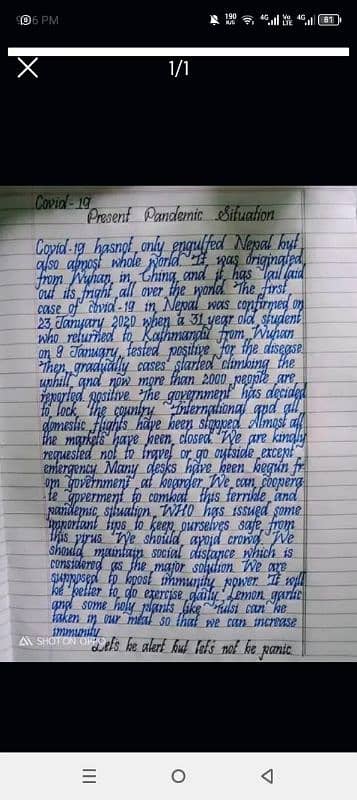 6 PM
190 K/S
4G
Vo LTE
4G
81
1/1
Covid-19
Present Pandemic Situation
Covid-19 hasnot only engulfed Nepal but
also almost whole world. It was originated
from Wuhan in China and it has laid
out its fright all over the world. The first
case of Covid-19 in Nepal was confirmed on
23 January 2020 when a 31 year old student
who returned to Kathmandu from Wuhan
on 9 January, tested positive for the disease.
Then gradually cases started climbing the
uphill and now more than 2000 people are
reported positive. The government has decided
to lock the country. International and all
domestic flights have been stopped. Almost all
the markets have been closed. We are kindly
requested not to travel or go outside except
emergency. Many desks have been begun fr
om government at boarder. We can coopera
te goverment to combat this terrible and
pandemic situation. WHO has issued some
important tips to keep ourselves safe from
this virus. We should avoid crowd. We
should maintain social distance which is
considered as the major solution. We are
supposed to boost immunity power. It will
be better to do exercise daily. Lemon, garlic
and some holy plants like Tulsi can be
taken in our meal so that we can increase
immunity.
SHOT ON OPPO
Let's be alert but let's not be panic.